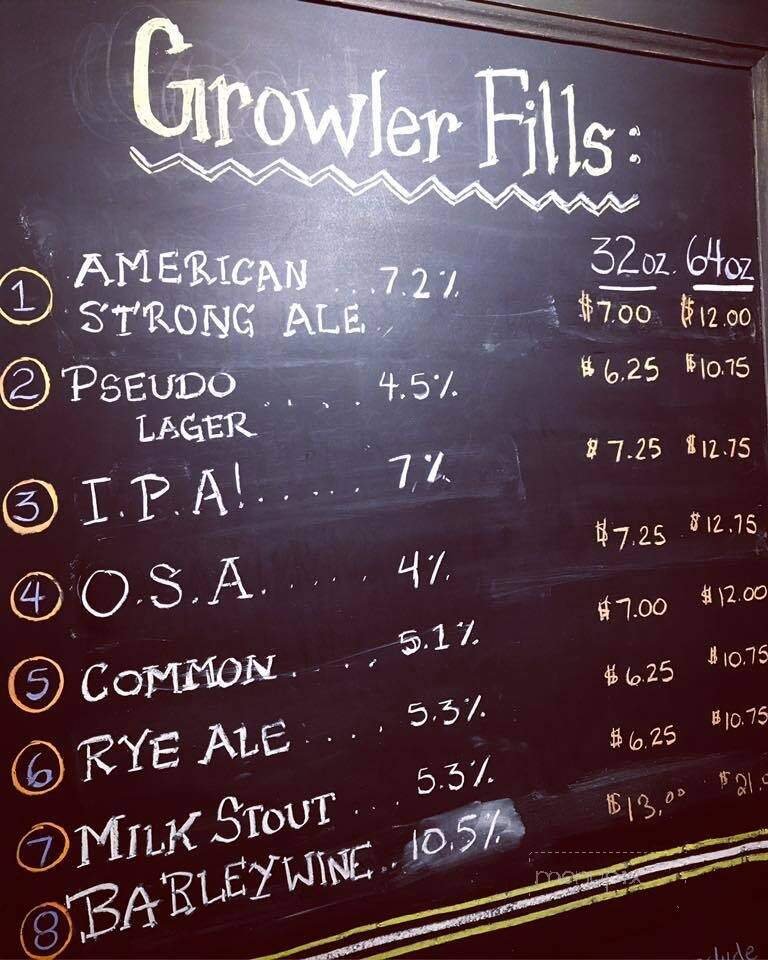 Growler Fills:
32oz. 64oz
1 AMERICAN STRONG ALE ...7.2% $7.00 $12.00
2 PSEUDO LAGER .... 4.5% $6.25 $10.75
3 I.P.A! ..... 7% $7.25 $12.75
4 O.S.A. ..... 4% $7.25 $12.75
5 COMMON .... 5.1% $7.00 $12.00
6 RYE ALE .... 5.3% $6.25 $10.75
7 MILK STOUT ... 5.3% $6.25 $10.75
8 BARLEYWINE .. 10.5% $13.00
menupix